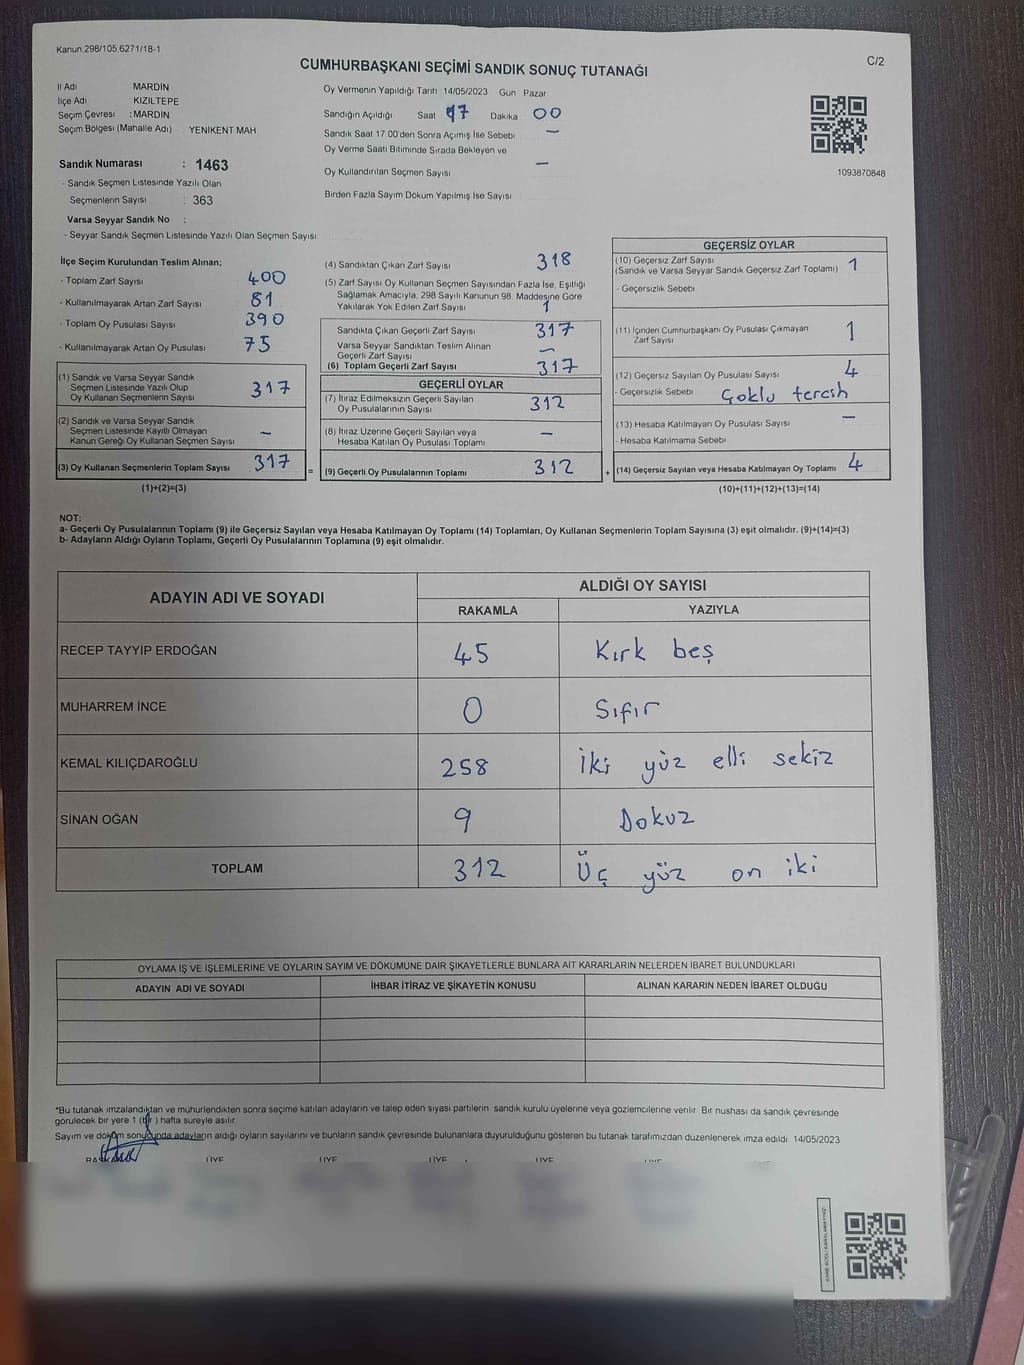 Kanun.298/105,6271/18-1
C/2
CUMHURBAŞKANI SEÇİMİ SANDIK SONUÇ TUTANAĞI
İl Adı MARDİN
İlçe Adı KIZILTEPE
Seçim Çevresi : MARDİN
Seçim Bölgesi (Mahalle Adı) YENİKENT MAH
Sandık Numarası : 1463
- Sandık Seçmen Listesinde Yazılı Olan
Seçmenlerin Sayısı : 363
Varsa Seyyar Sandık No :
- Seyyar Sandık Seçmen Listesinde Yazılı Olan Seçmen Sayısı
Oy Vermenin Yapıldığı Tarih 14/05/2023 Gün Pazar
Sandığın Açıldığı Saat 17 Dakika 00
Sandık Saat 17.00'den Sonra Açılmış İse Sebebi —
Oy Verme Saati Bitiminde Sırada Bekleyen ve
Oy Kullandırılan Seçmen Sayısı —
Birden Fazla Sayım Döküm Yapılmış İse Sayısı
1093870848
İlçe Seçim Kurulundan Teslim Alınan;
- Toplam Zarf Sayısı 400
- Kullanılmayarak Artan Zarf Sayısı 81
- Toplam Oy Pusulası Sayısı 390
- Kullanılmayarak Artan Oy Pusulası 75
(1) Sandık ve Varsa Seyyar Sandık
Seçmen Listesinde Yazılı Olup
Oy Kullanan Seçmenlerin Sayısı 317
(2) Sandık ve Varsa Seyyar Sandık
Seçmen Listesinde Kayıtlı Olmayan
Kanun Gereği Oy Kullanan Seçmen Sayısı —
(3) Oy Kullanan Seçmenlerin Toplam Sayısı 317 =
(1)+(2)=(3)
(4) Sandıktan Çıkan Zarf Sayısı 318
(5) Zarf Sayısı Oy Kullanan Seçmen Sayısından Fazla İse, Eşitliği
Sağlamak Amacıyla, 298 Sayılı Kanunun 98. Maddesine Göre
Yakılarak Yok Edilen Zarf Sayısı 1
Sandıkta Çıkan Geçerli Zarf Sayısı 317
Varsa Seyyar Sandıktan Teslim Alınan
Geçerli Zarf Sayısı —
(6) Toplam Geçerli Zarf Sayısı 317
GEÇERLİ OYLAR
(7) İtiraz Edilmeksizin Geçerli Sayılan
Oy Pusulalarının Sayısı 312
(8) İtiraz Üzerine Geçerli Sayılan veya
Hesaba Katılan Oy Pusulası Toplamı —
(9) Geçerli Oy Pusulalarının Toplamı 312 +
GEÇERSİZ OYLAR
(10) Geçersiz Zarf Sayısı
(Sandık ve Varsa Seyyar Sandık Geçersiz Zarf Toplamı) 1
- Geçersizlik Sebebi
(11) İçinden Cumhurbaşkanı Oy Pusulası Çıkmayan
Zarf Sayısı 1
(12) Geçersiz Sayılan Oy Pusulası Sayısı 4
- Geçersizlik Sebebi Çoklu tercih
(13) Hesaba Katılmayan Oy Pusulası Sayısı —
- Hesaba Katılmama Sebebi
(14) Geçersiz Sayılan veya Hesaba Katılmayan Oy Toplamı 4
(10)+(11)+(12)+(13)=(14)
NOT:
a- Geçerli Oy Pusulalarının Toplamı (9) ile Geçersiz Sayılan veya Hesaba Katılmayan Oy Toplamı (14) Toplamları, Oy Kullanan Seçmenlerin Toplam Sayısına (3) eşit olmalıdır. (9)+(14)=(3)
b- Adayların Aldığı Oyların Toplamı, Geçerli Oy Pusulalarının Toplamına (9) eşit olmalıdır.
ADAYIN ADI VE SOYADI ALDIĞI OY SAYISI
RAKAMLA YAZIYLA
RECEP TAYYİP ERDOĞAN 45 Kırk beş
MUHARREM İNCE 0 Sıfır
KEMAL KILIÇDAROĞLU 258 İki yüz elli sekiz
SİNAN OĞAN 9 Dokuz
TOPLAM 312 Üç yüz on iki
OYLAMA İŞ VE İŞLEMLERİNE VE OYLARIN SAYIM VE DÖKÜMÜNE DAİR ŞİKAYETLERLE BUNLARA AİT KARARLARIN NELERDEN İBARET BULUNDUKLARI
ADAYIN ADI VE SOYADI İHBAR İTİRAZ VE ŞİKAYETİN KONUSU ALINAN KARARIN NEDEN İBARET OLDUĞU
*Bu tutanak imzalandıktan ve mühürlendikten sonra seçime katılan adayların ve talep eden siyasi partilerin sandık kurulu üyelerine veya gözlemcilerine verilir. Bir nüshası da sandık çevresinde
görülecek bir yere 1 (bir) hafta süreyle asılır.
Sayım ve döküm sonucunda adayların aldığı oyların sayılarını ve bunların sandık çevresinde bulunanlara duyurulduğunu gösteren bu tutanak tarafımızdan düzenlenerek imza edildi. 14/05/2023
ÜYE ÜYE ÜYE ÜYE ÜYE